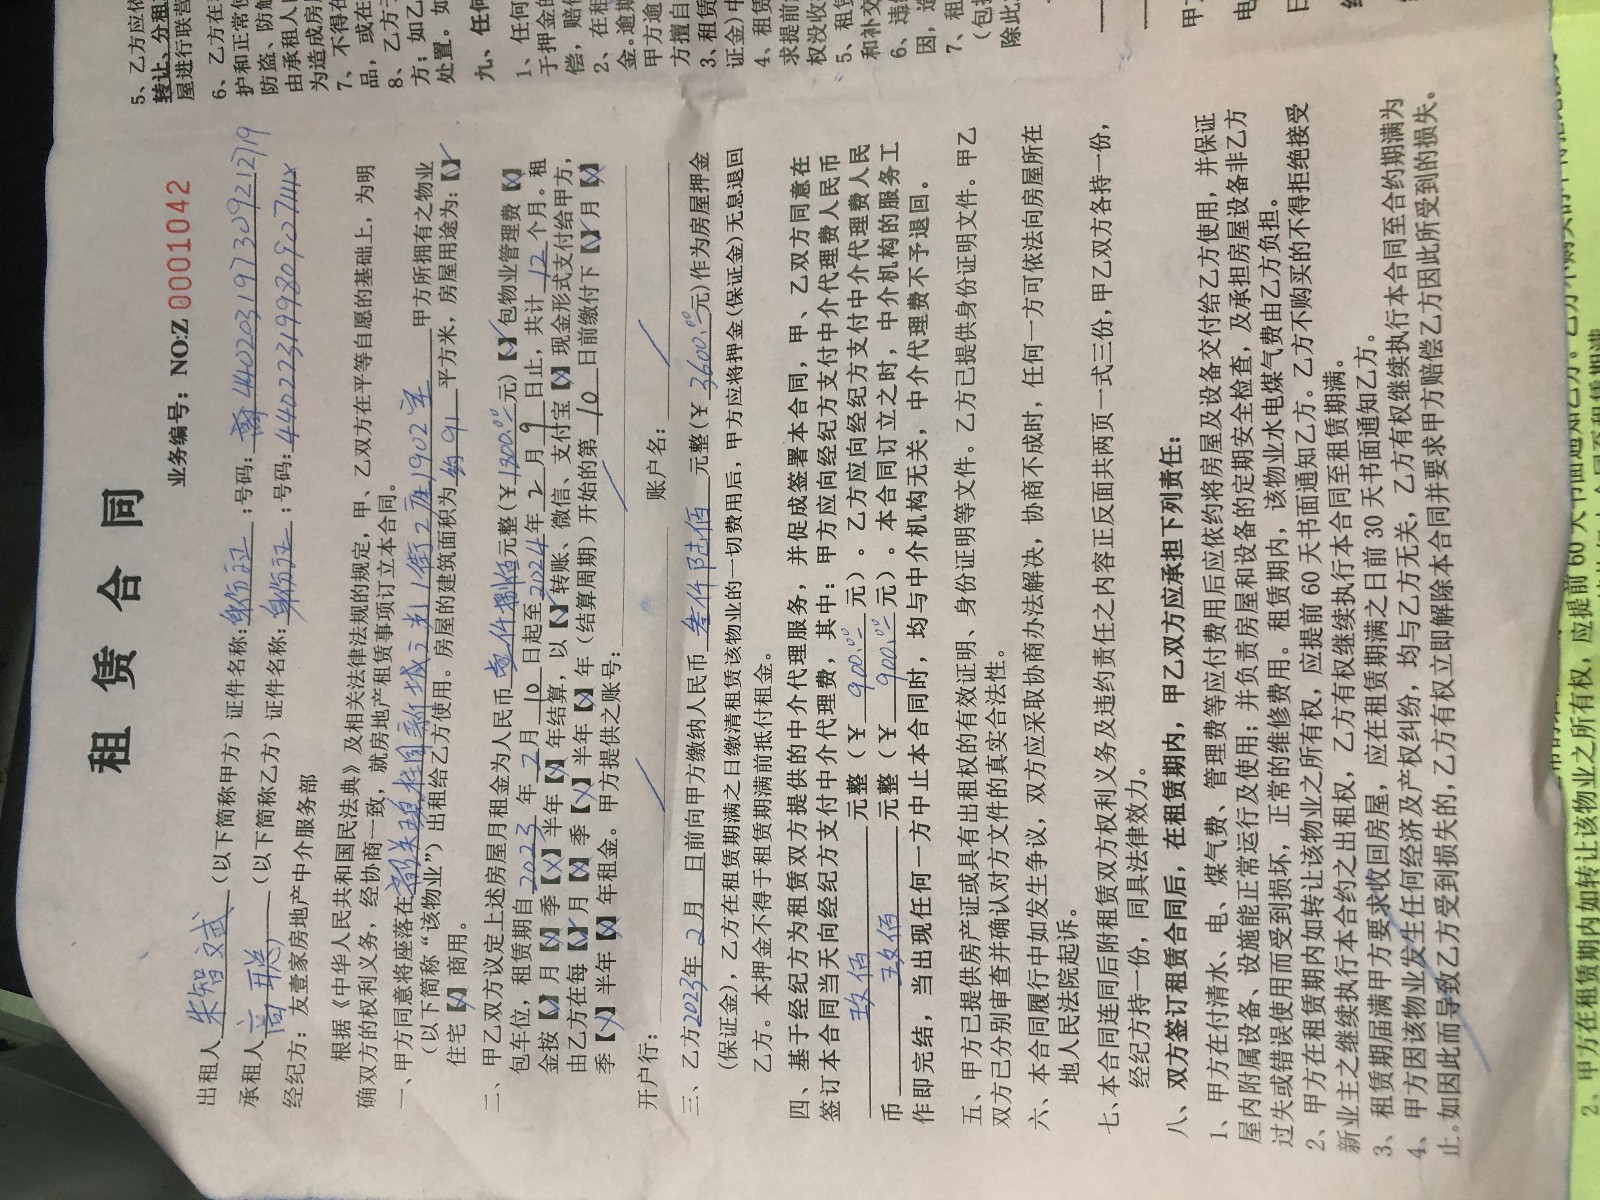 租赁合同
业务编号：NO:Z 0001042
出租人 朱智文 （以下简称甲方）证件名称：身份证；号码：
承租人 （以下简称乙方）证件名称：身份证；号码：
经纪方：友壹家房地产中介服务部
根据《中华人民共和国民法典》及相关法律法规的规定，甲、乙双方在平等自愿的基础上，为明
确双方的权利义务，经协商一致，就房地产租赁事项订立本合同。
一、甲方同意将座落在 韶关 新城 1街2座1902室 甲方所拥有之物业
（以下简称“该物业”）出租给乙方使用。房屋的建筑面积为 约91 平方米，房屋用途为：【√】
住宅【×】商用。
二、甲乙双方议定上述房屋月租金为人民币 壹仟捌佰 元整（￥1800.00元）【√】包物业管理费【×】
包车位，租赁期自 2023 年 2 月 10 日起至 2024 年 2 月 9 日止，共计 12 个月。租
金按【√】月【×】季【×】半年【×】年结算，以【√】转账、微信、支付宝【×】现金形式支付给甲方，
由乙方在每【√】月【×】季【×】半年【×】年（结算周期）开始的第 10 日前缴付下【√】月【×】
季【×】半年【×】年租金。甲方提供之账号：
开户行： 账户名：
三、乙方 2023年2月 日前向甲方缴纳人民币 叁仟陆佰 元整（￥3600.00元）作为房屋押金
（保证金），乙方在租赁期满之日缴清租赁该物业的一切费用后，甲方应将押金（保证金）无息退回
乙方。本押金不得于租赁期满前抵付租金。
四、基于经纪方为租赁双方提供的中介代理服务，并促成签署本合同，甲、乙双方同意在
签订本合同当天向经纪方支付中介代理费，其中：甲方应向经纪方支付中介代理费人民币
玖佰 元整（￥900.00元）。乙方应向经纪方支付中介代理费人民
币 玖佰 元整（￥900.00元）。本合同订立之时，中介机构的服务工
作即完结，当出现任何一方中止本合同时，均与中介机构无关，中介代理费不予退回。
五、甲方已提供房产证或具有出租权的有效证明、身份证明等文件。乙方已提供身份证明文件。甲乙
双方已分别审查并确认对方文件的真实合法性。
六、本合同履行中如发生争议，双方应采取协商办法解决，协商不成时，任何一方可依法向房屋所在
地人民法院起诉。
七、本合同连同后附租赁双方权利义务及违约责任之内容正反面共两页一式三份，甲乙双方各持一份，
经纪方持一份，同具法律效力。
八、双方签订租赁合同后，在租赁期内，甲乙双方应承担下列责任：
1、甲方在付清水、电、煤气费、管理费等应付费用后应依约将房屋及设备交付给乙方使用，并保证
屋内附属设备、设施能正常运行及使用；并负责房屋和设备的定期安全检查，及承担房屋设备非乙方
过失或错误使用而受到损坏，正常的维修费用。租赁期内，该物业水电煤气费由乙方负担。
2、甲方在租赁期内如转让该物业之所有权，应提前 60 天书面通知乙方。乙方不购买的不得拒绝接受
新业主之继续执行本合约之出租权，乙方有权继续执行本合同至租赁期满。
3、租赁期届满甲方要求收回房屋，应在租赁期满之日前 30 天书面通知乙方。
4、甲方因该物业发生任何经济及产权纠纷，均与乙方无关，乙方有权继续执行本合同至合约期满为
止。如因此而导致乙方受到损失的，乙方有权立即解除本合同并要求甲方赔偿乙方因此所受到的损失。
5、乙方应依
转让、分租
屋进行联营
6、乙方在
护和正常使
防盗、防触
由承租人
为造成房
7、不得在
品，或在
8、乙方
方；如乙
处置。如
九、任何
1、任何
于押金的
偿，赔偿
2、在租
金。逾期
甲方逾
方擅自
3、租赁
证金）中
4、租赁
求提前
权没收
5、租赁
和补交
6、违
因，造
7、租
（包
除此
甲方
电
日
2、甲方在租赁期内如转让该物业之所有权，应提前 60 天书面通知乙方。